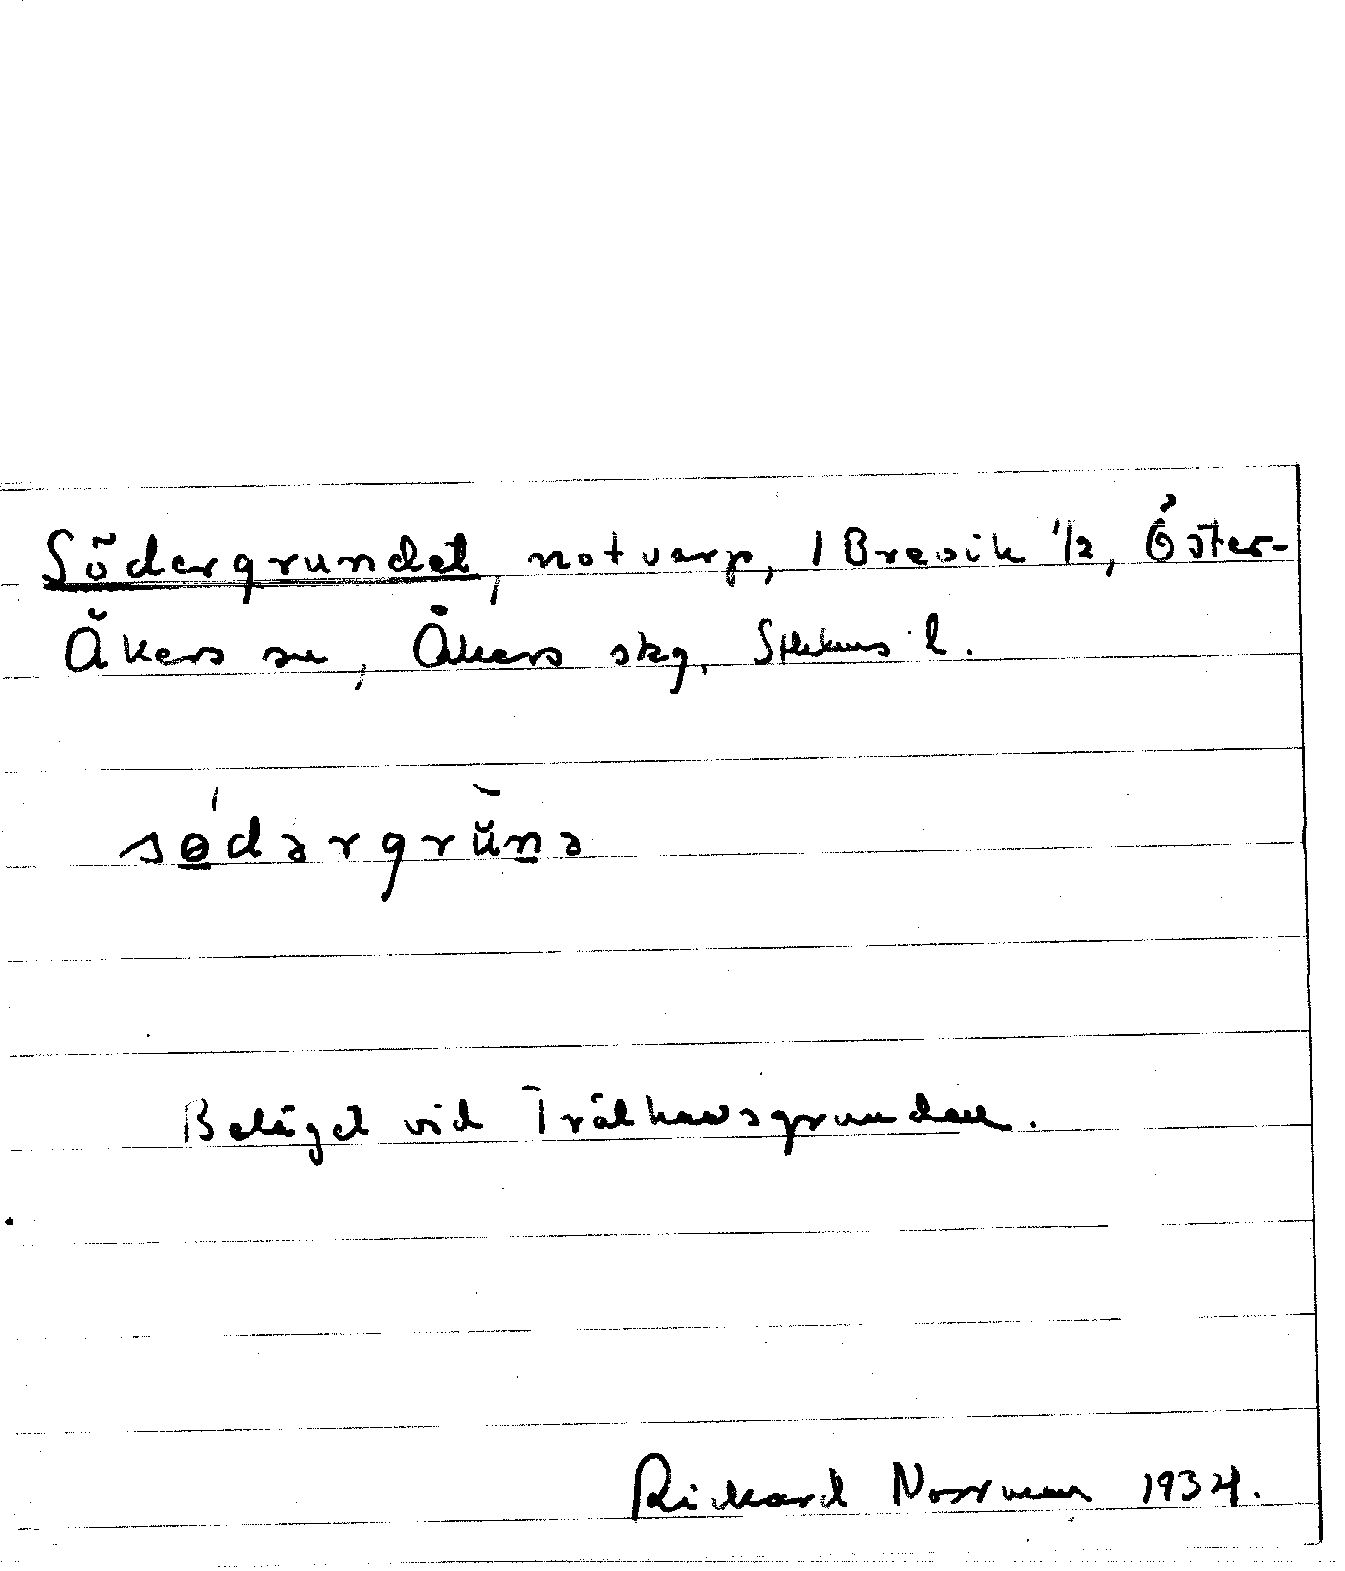 Södergrundet, notvarp, 1 Brevik 1/2, Öster-
Åkers sn, Åkers skg, Sthlms l.
sǿ̱dərgrŭ̀ṉə
Beläget vid Trälhavsgrunden.
Rickard Norrman 1934.